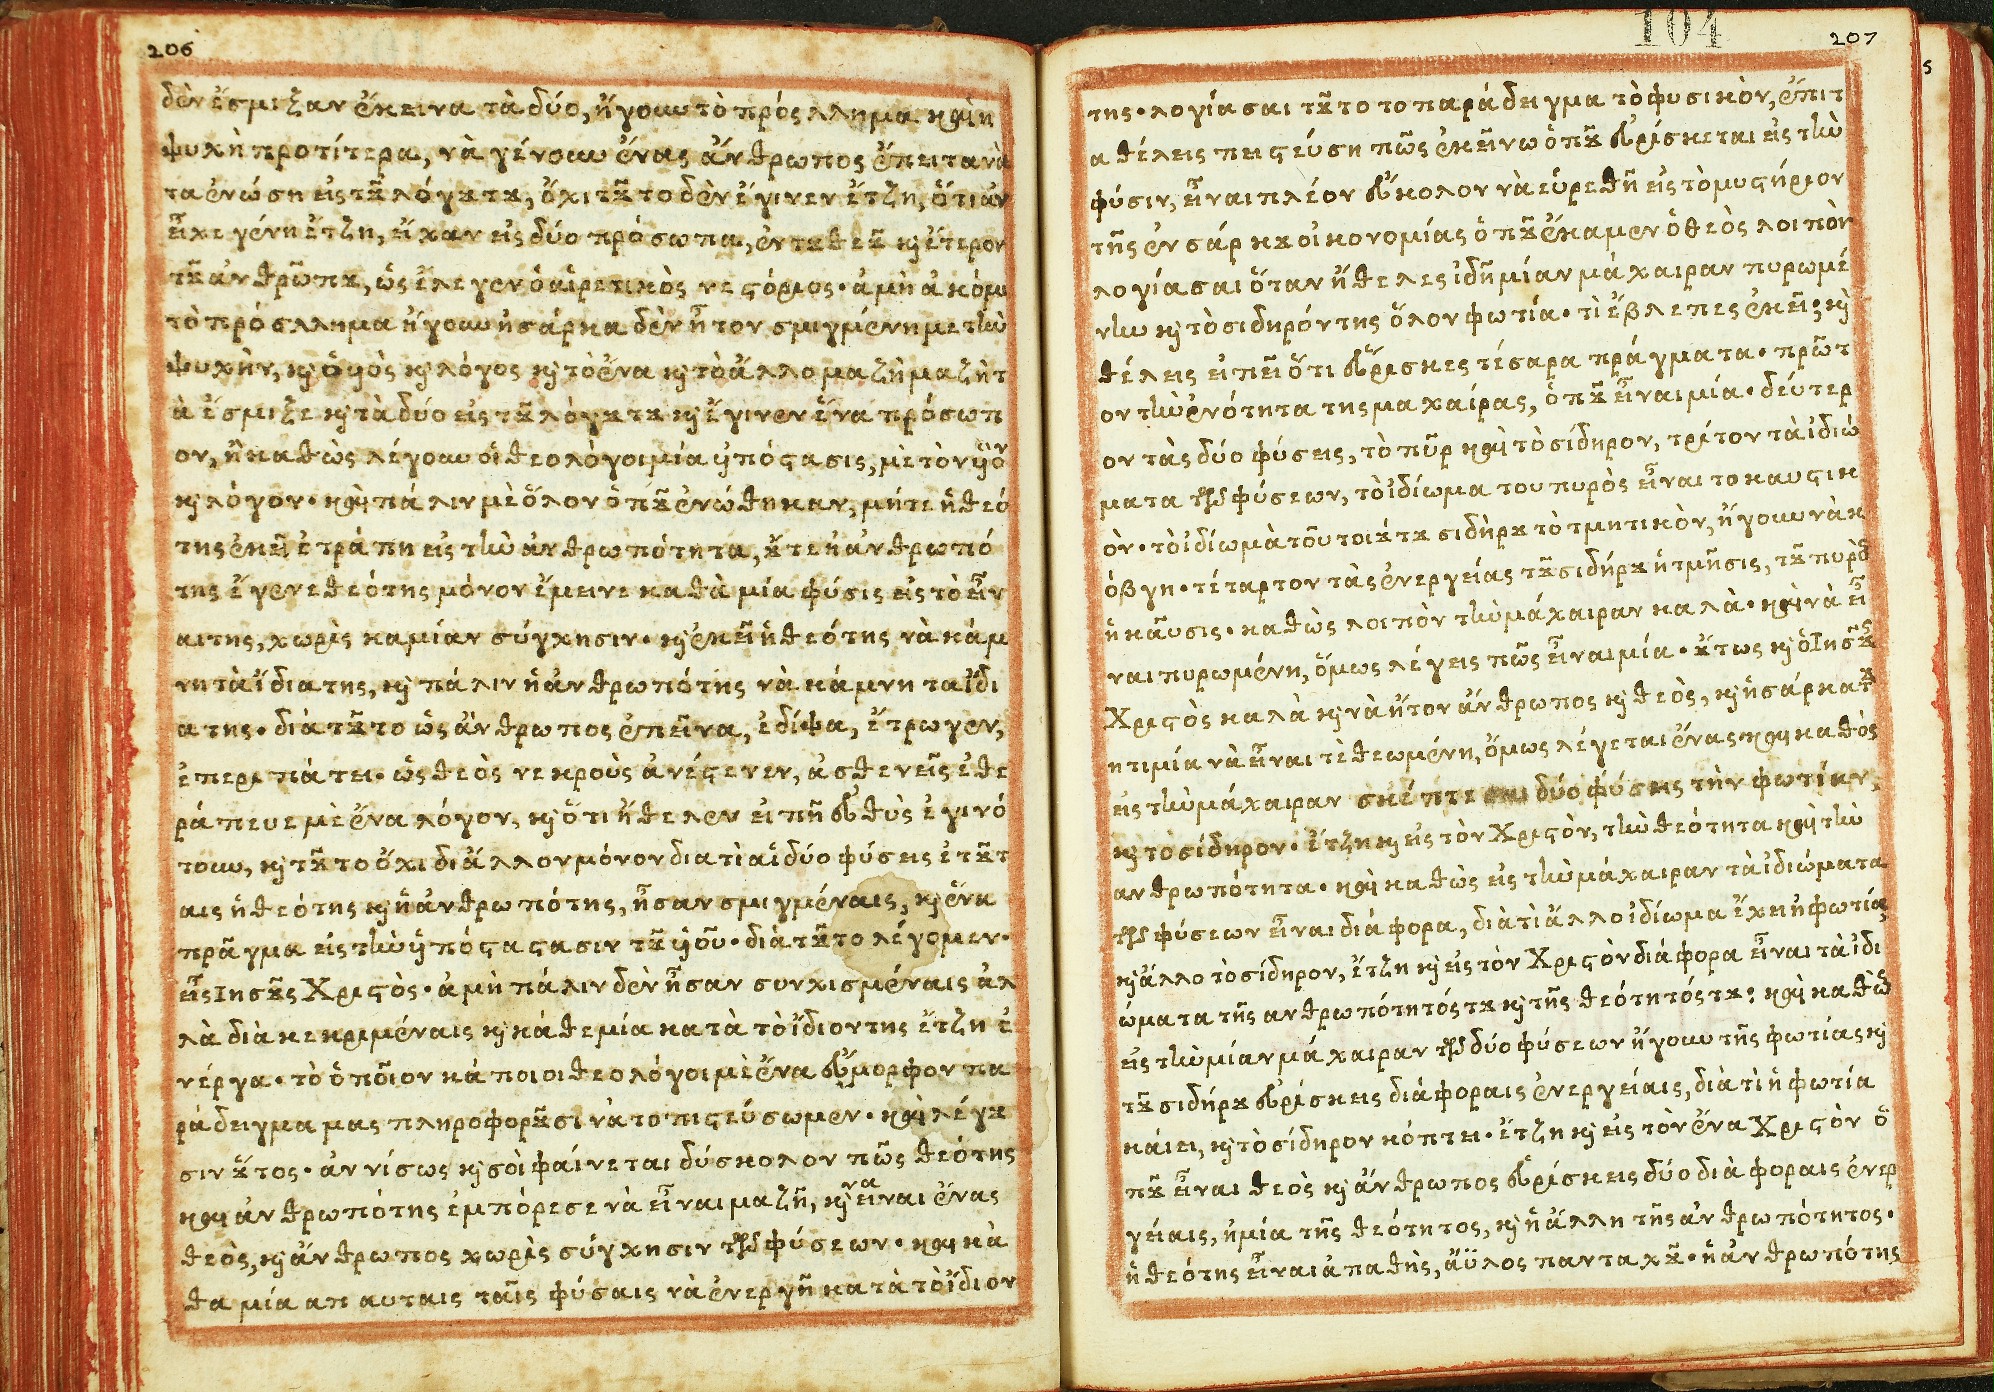 206
δὲν ἔσμιξαν ἐκεινα τὰ δύο, ἤγουν τὸ πρόσλλημα καὶ η
ψυχὴ προτίτερα, νὰ γένουν ἕνας ἄνθρωπος ἔπειτα νὰ
τα ἑνώση εἰς τοῦ λόγου του, ὄχι τοῦτο δὲν ἔγινεν ἔτζη, ὅτι ἀν
εἶχε γένη ἔτζη, εἴχαν εἰς δύο πρόσωπα, ἑν του θεοῦ κὶ ἕτερον
τοῦ ἀνθρῶπου, ὡς ἔλεγεν ὁ αἱρετικὸς νεςόριος· ἀμὴ ἀκόμι
τὸ πρόσλλημα ἤγουν ἡ σάρκα δὲν ἦτον σμιγμένη με τὴν
ψυχὴν, κὶ ὁ ὑιὸς κὶ λόγος κὶ τὸ ἕνα κὶ τὸ ἄλλο μαζὴ μαζὴ τ
ὰ ἔσμιξε κὶ τὰ δύο εἰς τοῦ λόγου του κὶ ἔγινεν ἕνα πρόσωπ
ον, ἢ καθὼς λέγουν οἱ θεολόγοι μία ὑπόςασις, μὲ τὸν ὑιὸν
κὶ λόγον· καὶ πάλιν μὲ ὅλον ὁποῦ ἑνώθηκαν, μήτε ἡ θεό
της ἐκεῖ ἐτράπη εἰς τὴν ἀνθρωπότητα, οὔτε ἡ ἀνθρωπό
της ἔγενε θεότης μόνον ἔμεινε καθὰ μία φύσις εἰς τὸ εἶν
αι της, χωρὶς καμίαν σύγχησιν· κὶ ἐκεῖ ἡ θεότης νὰ κάμ
νη τὰ ἴδια της, κὶ πάλιν ἡ ἀνθρωπότης νὰ κάμνη τα ἴδι
α της· διὰ τοῦτο ὡς ἄνθρωπος ἐπεῖνα, ἐδίψα, ἔτρωγεν,
ἐπεριπάτει· ὡς θεὸς νεκροὺς ἀνέςενεν, ἀσθενεῖς ἐθε
ράπευε μὲ ἕνα λόγον, κὶ ὅτι ἤθελεν εἰπῆ εὐθὺς ἐγινό
τουν, κὶ τοῦτο ὄχι δι ἄλλον μόνον διατὶ αἱ δύο φύσεις ἐτοῦτ
αις ἡ θεότης κὶ ἡ ἀνθρωπότης, ἦσαν σμιγμέναις, κὶ ἕνα
πρᾶγμα εἰς τὴν ὑπόςαςασιν τοῦ ὑιοῦ· διὰ τοῦτο λέγομεν·
εἷς Ιησοῦς Χριςὸς· ἀμὴ πάλιν δὲν ἦσαν συνχισμέναις ἀλ
λὰ διὰ κεκριμέναις κὶ κάθε μία κατὰ τὸ ἴδιον της ἔτζη ἐ
νέργα· τὸ ὁποῖον κάποιοι θεολόγοι μὲ ἕνα εὔμορφον πα
ράδειγμα μας πληροφοροῦσι νὰ το πιςεύσωμεν· καὶ λέγου
σιν οὕτος· ἀν νίσως κὶ σοὶ φαίνεται δύσκολον πῶς θεότης
καὶ ἀνθρωπότης ἐμπόρεσε νὰ εἶναι μαζῆ, κὶ να εἶναι ἕνας
θεὸς, κὶ ἄνθρωπος χωρὶς σύγχησιν τῶν φύσεων· καὶ κὰ
θα μία απ αυταις ταῖς φύσαις νὰ ἐνεργῆ κατὰ τὸ ἴδιον
104
207
της· λογίασαι τοῦτο το παράδειγμα τὸ φυσικὸν, ἔπιτ
α θέλεις πιςεύση πῶς ἐκεῖνω ὁποῦ εὑρίσκεται εἰς τὴν
φύσιν, εἶναι πλέον εὔκολον νὰ εὑρεθῆ εἰς τὸ μυςήριον
τῆς ἐνσάρκου οἰκονομίας ὁποῦ ἔκαμεν ὁ θεὸς λοιπὸν
λογίασαι ὅταν ἤθελες ἰδῆ μίαν μάχαιραν πυρωμέ
νην κὶ τὸ σιδηρόν της ὅλον φωτία· τὶ ἔβλεπες ἐκεῖ; κὶ
θέλεις εἰπεῖ ὅτι εὕρισκες τέσαρα πράγματα· πρῶτ
ον τὴν ἑνότητα της μαχαίρας, ὁποῦ εἶναι μία· δεύτερ
ον τὰς δύο φύσεις, τὸ πῦρ καὶ τὸ σίδηρον, τρίτον τὰ ἰδιώ
ματα τῶν φύσεων, τὸ ἰδίωμα του πυρὸς εἶναι το καυςικ
ὸν· τὸ ἰδίωμὰ τοῦ τοιούτου σιδὴρου τὸ τμητικὸν, ἤγουν νὰ κ
όβγη· τέταρτον τὰς ἐνεργείας τοῦ σιδήρου ἡ τμῆσις, τοῦ πυρὸς
ἡ καῦσις· καθὼς λοιπὸν τὴν μάχαιραν καλὰ· καὶ νὰ εἶ
ναι πυρωμένη, ὅμως λέγεις πῶς εἶναι μία· οὕτως κὶ ὁ Ιησοῦς
Χριςὸς καλὰ κὶ νὰ ἤτον ἄνθρωπος κὶ θεὸς, κὶ ἡ σάρκα του
η τιμία νὰ εἶναι τὲθεωμένη, ὅμως λέγεται ἕνας· καὶ καθὸς
εἰς τὴν μάχαιραν σκέπτεσαι δύο φύσεις τὴν φωτίαν,
κὶ τὸ σίδηρον· ἔτζη κὶ εἰς τὸν Χριςὸν, τὴν θεότητα καὶ τὴν
ανθρωπότητα· καὶ καθὼς εἰς τὴν μάχαιραν τὰ ἰδιώματα
τῶν φύσεων εἶναι διάφορα, διὰτὶ ἄλλο ἰδίωμα ἔχει ἡ φωτία,
κὶ ἄλλο τὸ σίδηρον, ἔτζη κὶ εἰς τὸν Χριςὸν διάφορα εἶναι τὰ ἰδι
ώματα τῆς ανθρωπότητός του κὶ τῆς θεότητός του; καὶ καθὼς
εἰς τὴν μίαν μάχαιραν τῶν δύο φύσεων ἤγουν τῆς φωτίας κὶ
τοῦ σιδήρου εὑρίσκεις διάφοραις ἐνεργείαις, διὰτὶ ἡ φωτία
κάιει, κὶ τὸ σίδηρον κόπτει· ἔτζη κὶ εἰς τὸν ἕνα Χριςὸν ὅ
ποῦ εἶναι θεὸς κὶ ἄνθρωπος εὑρίσκεις δύο διὰφοραις ἐνερ
γείαις, ἡ μία τῆς θεότητος, κὶ ἡ ἄλλη τῆς ἀνθρωπότητος·
ἡ θεότης εἶναι ἀπαθὴς, ἄϋλος πανταχοῦ· ἡ ἀνθρωπότης